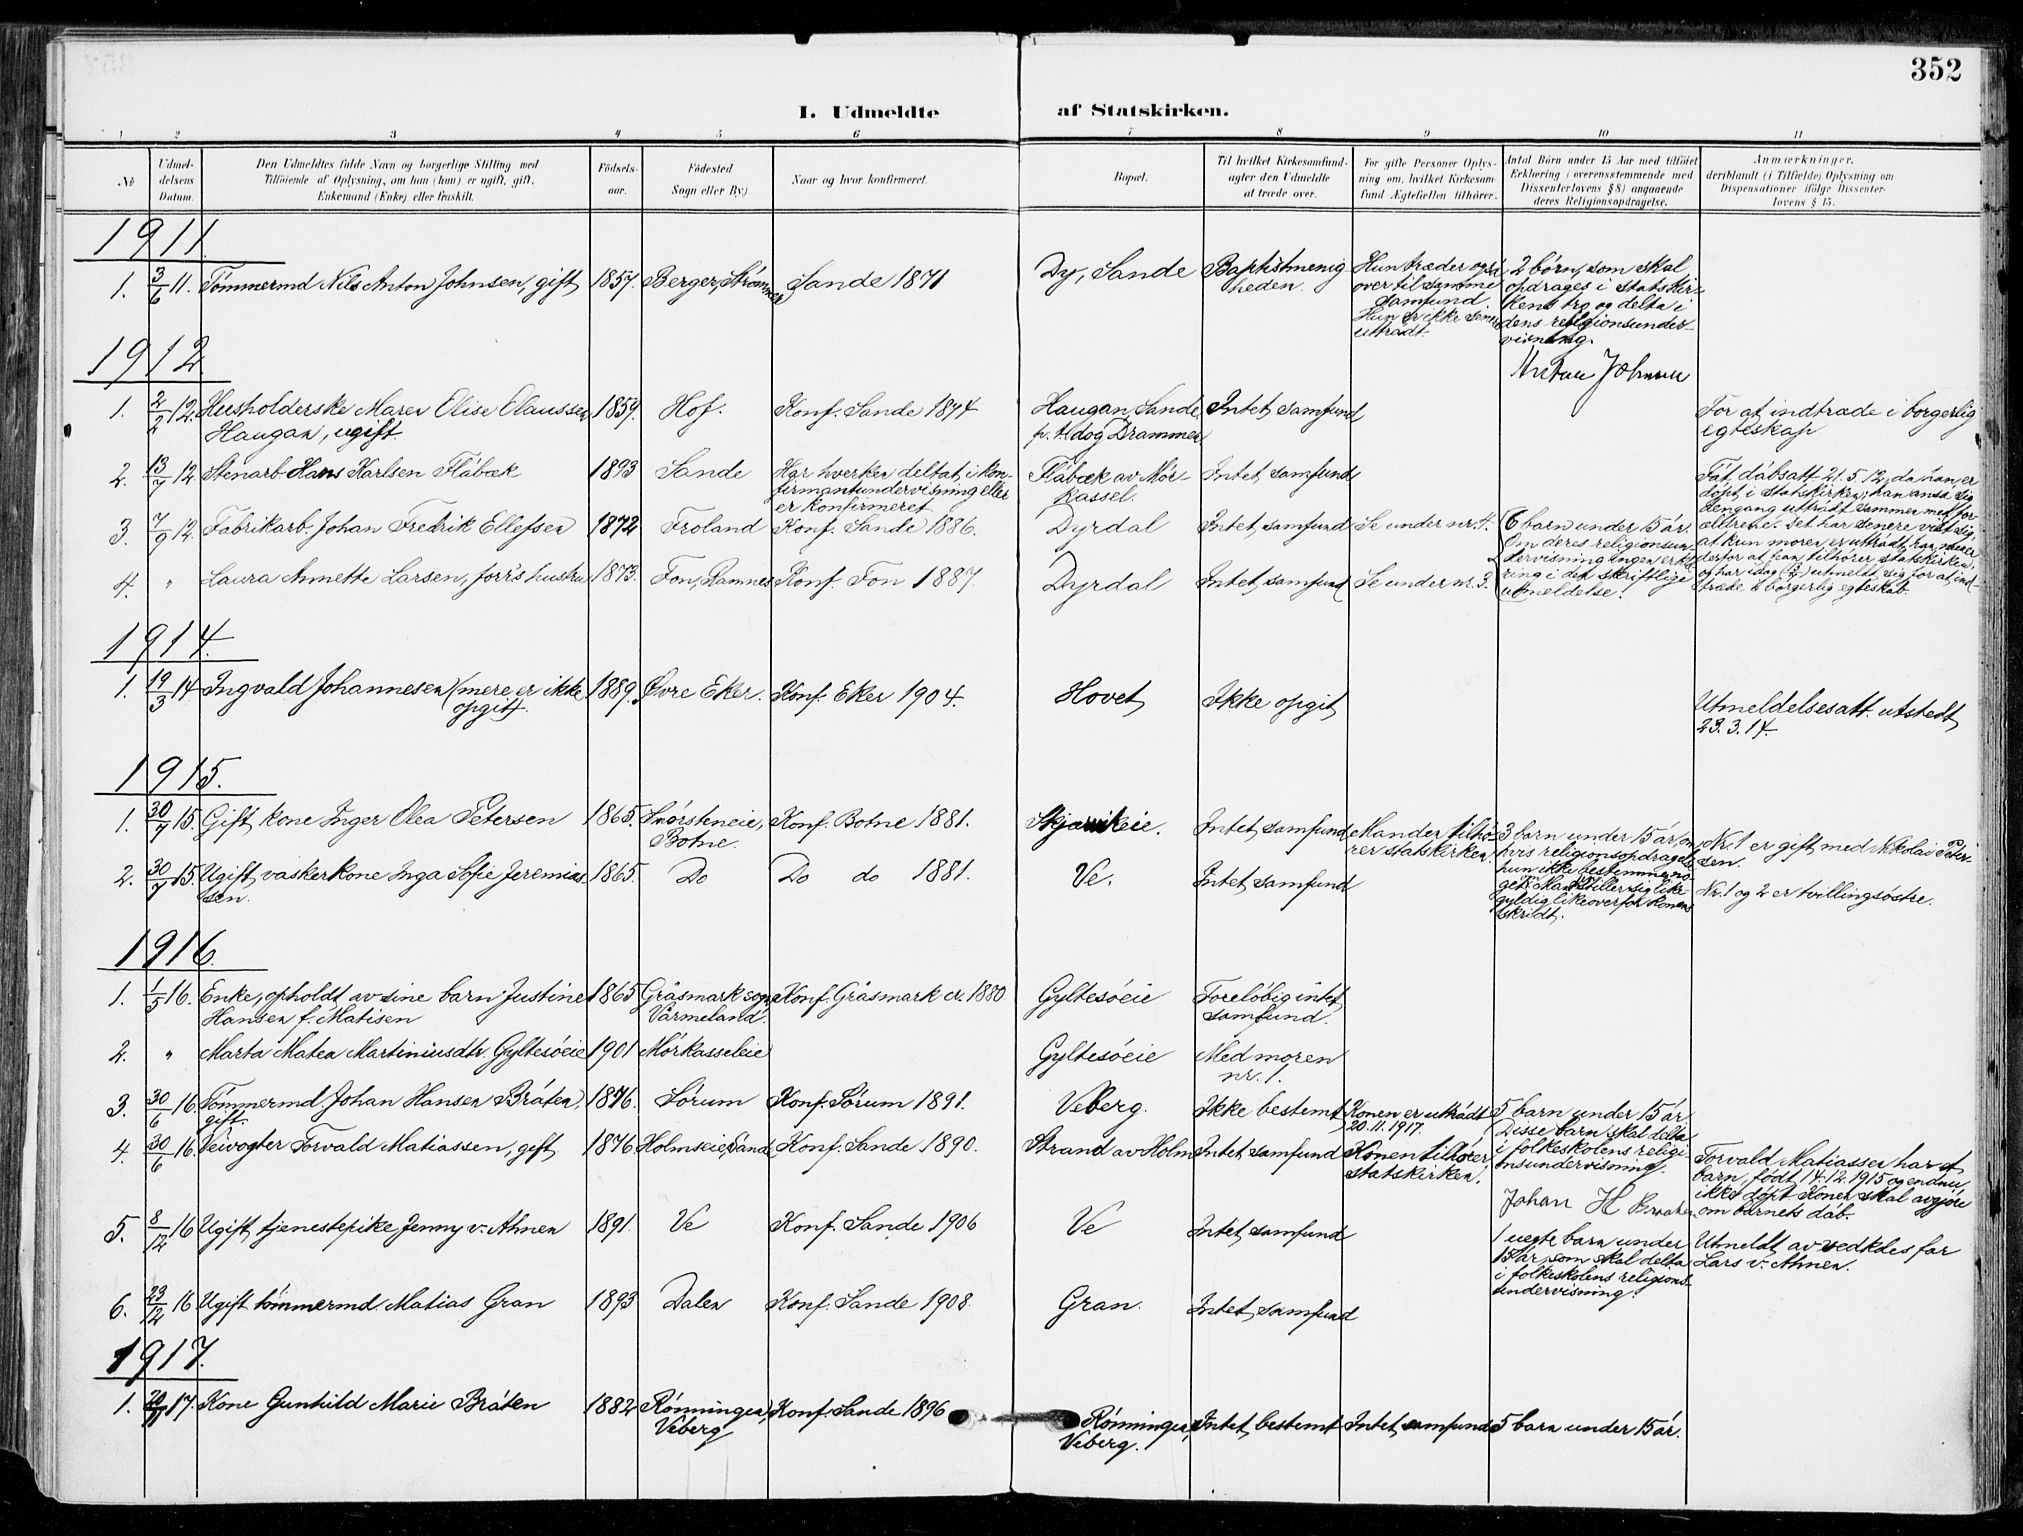 352
I. Udmeldte af Statskirken.
1 2 3 4 5 6 7 8 9 10 11
No
Udmel-
delsens
Datum.
Den Udmeldtes fulde Navn og borgerlige Stilling med
Tilföiende af Oplysning, om han (hun) er ugift, gift,
Enkemand (Enke) eller fraskilt.
Födsels-
aar.
Födested
Sogn eller By.)
Naar og hvor konfirmeret.
Bopæl.
Til hvilket Kirkesamfund
agter den Udmeldte
at træde over.
For gifte Personer Oplys-
ning om, hvilket Kirkesam-
fund Ægtefællen tilhörer.
Antal Börn under 15 Aar med tilföiet
Erklæring (overensstemmende med
Dissenterlovens § 8) angaaende
deres Religionsopdragelse.
Anmærkninger,
deriblandt (i Tilfælde) Oplysning om
Dispensationer ifölge Dissenter-
lovens § 15.
1911.
1. 3/6 11. Tömmermd Nils Anton Johnsen, gift 1857. Berger, Strömmen Sande 1871
Dy, Sande
Baptistmenig
heden.
Hun træder også
over til samme
samfund.
Hun er ikke senere
utrådt.
2 børn, som skal
opdrages i statskir-
kens tro og delta i
dens religionsunder-
visning.
Anton Johnsen
1912
1. 2/2 12. Husholderske Maren Elise Olaussen 1859. Hof. Konf. Sande 1874
Haugan, ugift
Haugan, Sande
p. t. dog Drammen.
Intet samfund
For at indtræde i borgerlig
egteskap
2. 13/7 12. Stenarb. Hans Karlsen Flåbæk 1893 Sande
Har hverken deltat i kon-
firmantundervisning eller
er konfirmeret
Flåbæk av Mör-
kassel.
Intet samfund
Fåt dåbsatt. 21.5.12, da han er
döpt i statskirken; han anså sig
dengang utrådt sammen med for
ældrene. Det har senere vist sig,
at kun moren er utrådt, han mener
derfor at han tilhører statskirken,
og har idag utmeldt sig for at ind-
træde i borgerlig egteskab.
3. 7/9 12. Fabrikarb. Johan Fredrik Ellefsen 1872 Froland Konf. Sande 1886.
Dyrdal Intet samfund Se under nr. 4.
6 barn under 15 år.
Om deres religionsun-
dervisning ingen erklæ
ring i den skriftlige
utmeldelse.
4. " Laura Annette Larsen, forr's hustru 1873. Fon, Ramnes Konf. Fon 1887.
Dyrdal Intet samfund Se under nr. 3.
1914.
1. 19/3 14. Ingvald Johannesen (mere er ikke 1889. Øvre Eker. Konf. Eker 1904.
opgit).
Hovet Ikke opgit
Utmeldelsesatt. utstedt
23.3.14.
1915.
1. 30/7 15. Gift kone Inger Olea Petersen 1865. Snörsteneie, Konf. Botne 1881.
Botne.
Intet samfund
Manden tilhö-
rer statskirken.
3 barn under 15 år, om
hvis religionsopdragelse
hun ikke bestemmer no-
get. Manden stiller sig like-
gyldig likeoverfor konens
skridt.
Nr. 1 er gift med Nikolai Peter-
sen.
2. 30/7 15. Ugift vaskerkone Inga Sofie Jeremias- 1865. Do Do do 1881.
sen.
Ve. Intet samfund
Nr. 1 og 2 er tvillingsöstre.
1916.
1. 1/5 16. Enke, opholdt av sine barn Justine 1865 Gråsmark sogn Konf. Gråsmark ca. 1880
Hansen f. Matisen Värmeland.
Gyltesöeie
Foreløbig intet
samfund.
2. " Marta Matea Martiniusdtr. Gyltesöeie 1901 Mörkasseleie
Gyltesöeie
Med moren
nr. 1.
3. 30/6 16. Tömmermd Johan Hansen Bråten, 1876. Sörum Konf. Sörum 1891.
gift.
Veberg. Ikke bestemt
Konen er utrådt
20.11.1917.
5 barn under 15 år
Disse barn skal delta
i folkeskolens religi-
onsundervisning.
Johan H Braaten
4. 30/6 16. Veivogter Torvald Matiassen, gift 1876 Holmseie, Sande Konf. Sande 1890.
Strand av Holm Intet samfund
Konen tilhörer
statskirken.
Torvald Matiassen har et
barn, født 14.12.1915 og endnu
ikke döpt. Konen skal avgjöre
om barnets dåb.
5. 8/12 16 Ugift tjenestepike Jenny v. Ahnen 1891. Ve Konf. Sande 1906
Ve Intet samfund
1 uegte barn under
15 år, som skal delta
i folkeskolens religions-
undervisning.
Utmeldt av vedkdes far
Lars v. Ahnen.
6. 23/12 16 Ugift tömmermd Matias Gran 1893 Dalen Konf. Sande 1908.
Gran. Intet samfund
1917.
1. 20/11 17. Kone Gunhild Marie Bråten 1882 Rönningen, Konf. Sande 1896
Veberg
Rönningen,
Veberg.
Intet bestemt Intet samfund 5 barn under 15 år.